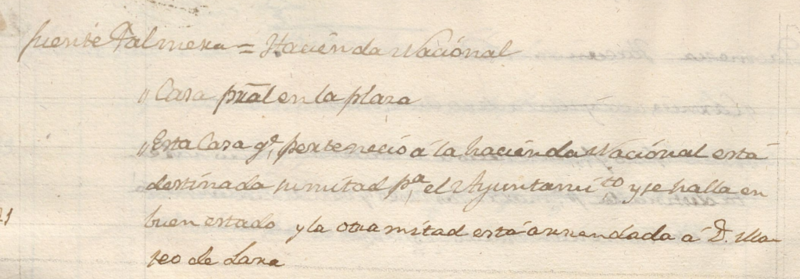 fuente Palmera = Haciénda Naciónal
„ Casa pral en la plaza
„ Esta Casa qe. perteneció á la haciénda Nacional está
destinada su mitad pa. el Ayuntamito. y se halla en
21
buen estado y la otra mitad está arrendada á D. Ma-
teo de Lara